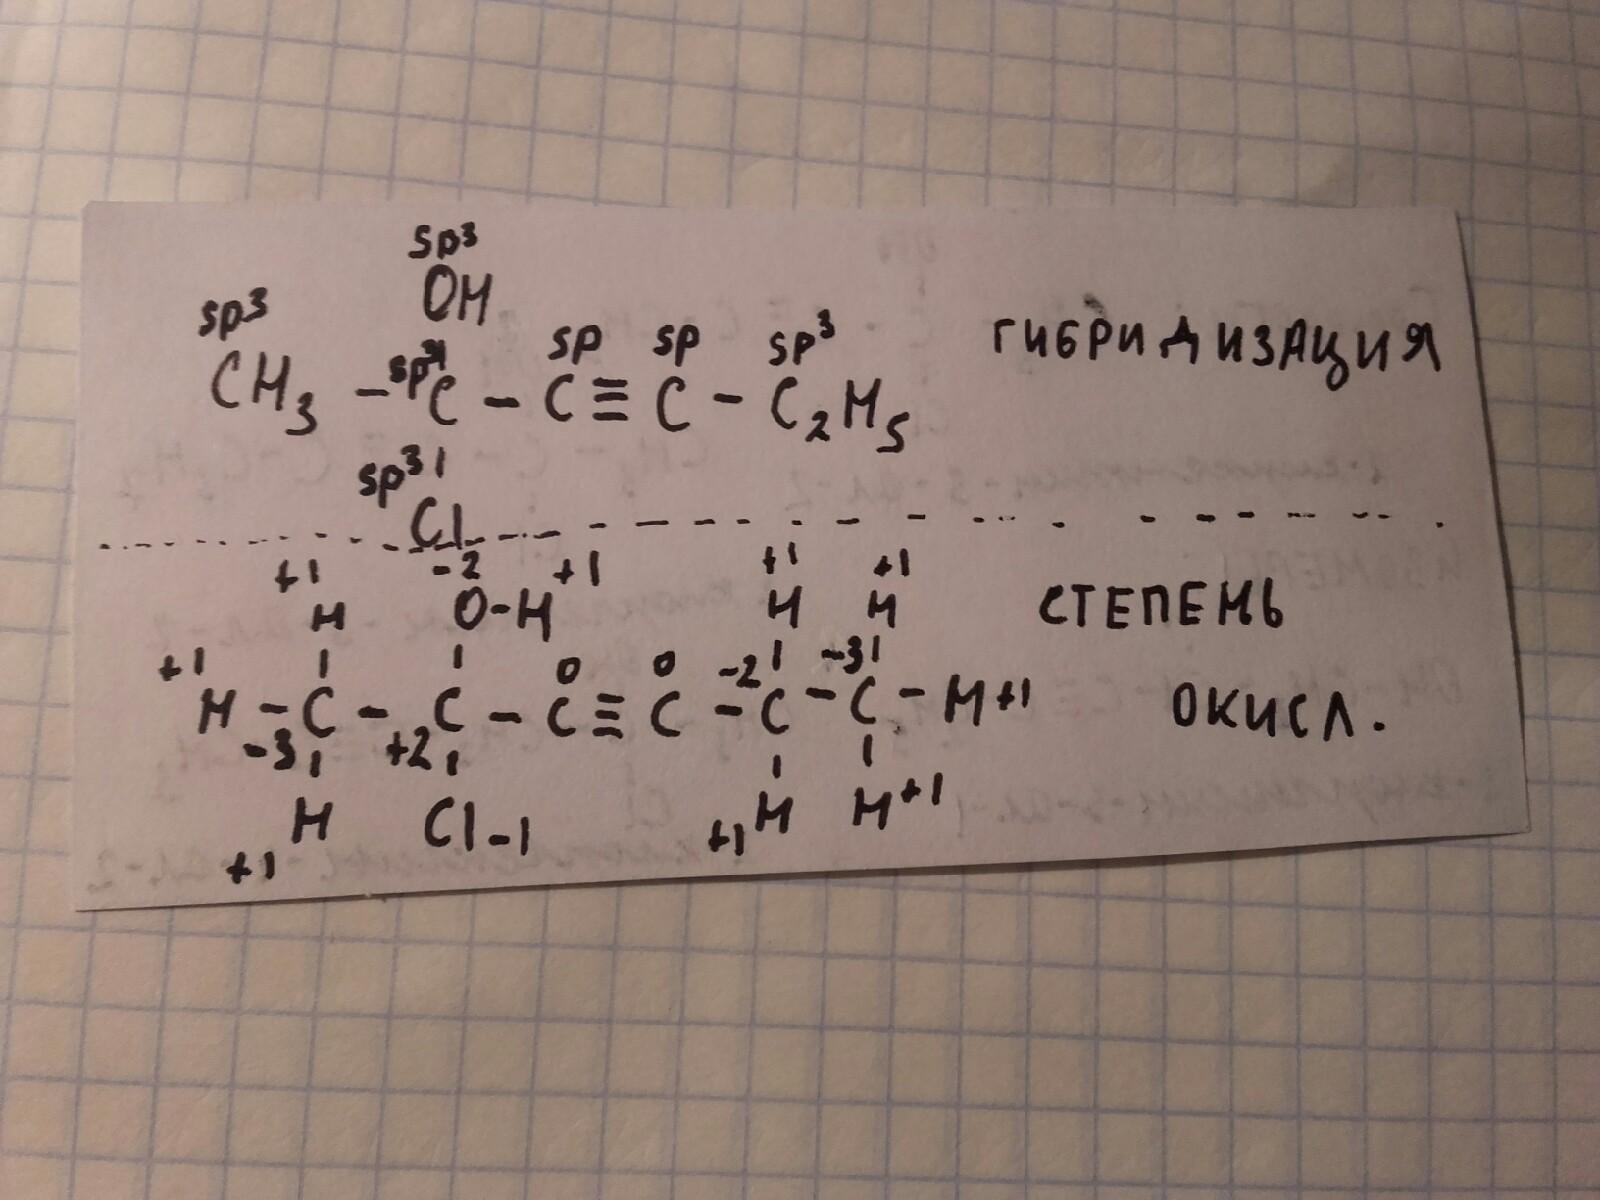 sp³
OH
sp³ sp³ sp sp sp³
CH₃ – C – C ≡ C – C₂H₅ ГИБРИДИЗАЦИЯ
sp³
Cl
+1 -2 +1 +1 +1
H O-H H H СТЕПЕНЬ
+1 0 0 -2 -3
H – C – C – C ≡ C – C – C – H +1 ОКИСЛ.
-3 +2
H Cl -1 H H +1
+1 +1